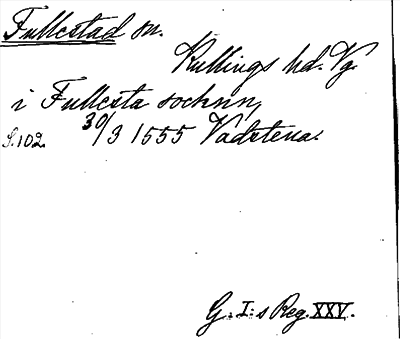 Fullestad sn.
Kullings hd. Vg.
i Fullesta sochnn,
S.102. 30/3 1555 Vadstena.
G. I:s Reg. XXV.